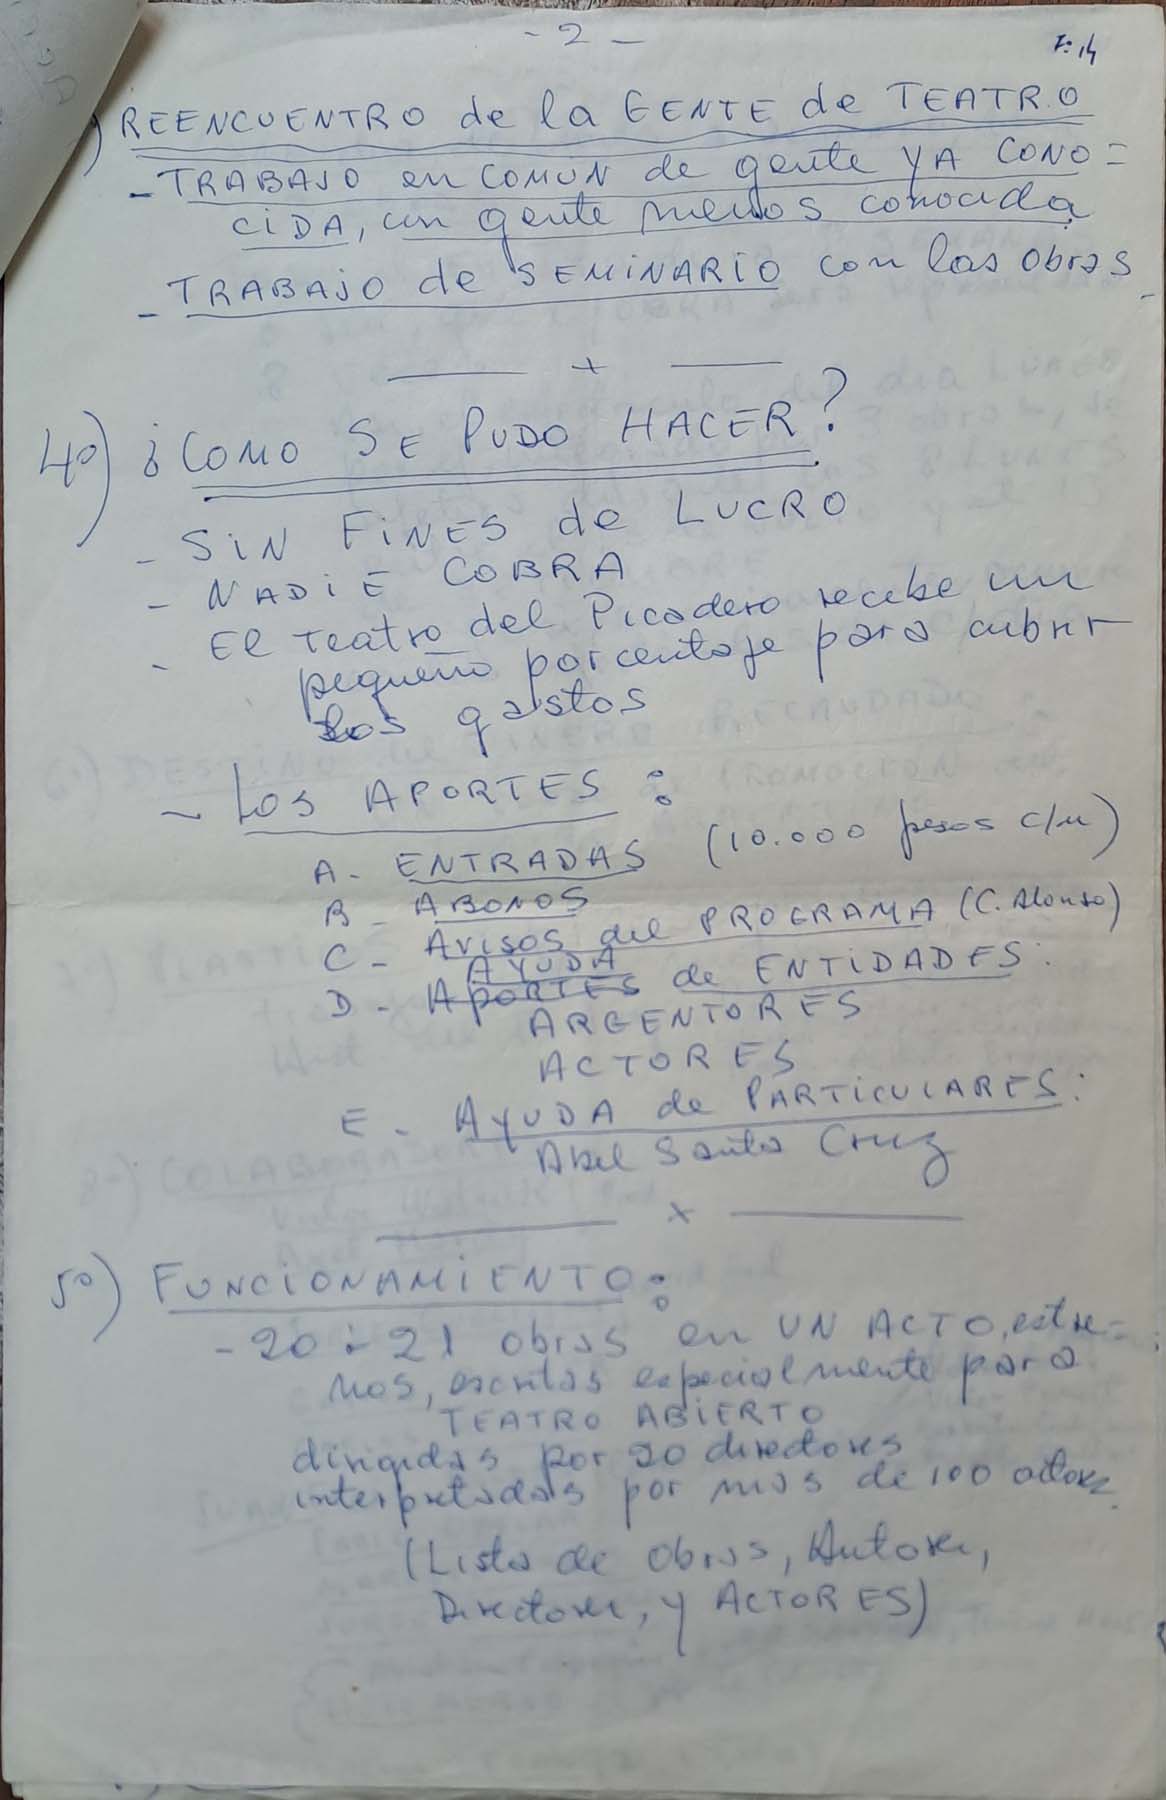 - 2 -
F: 14
) REENCUENTRO de la GENTE de TEATRO
- TRABAJO en COMUN de gente YA CONO=
CIDA, con gente menos conocida
- TRABAJO de SEMINARIO con las obras
+
4º) ¿COMO SE PUDO HACER?
- SIN FINES de LUCRO
- NADIE COBRA
- El Teatro del Picadero recibe un
pequeño porcentaje para cubrir
los gastos
- LOS APORTES:
A- ENTRADAS (10.000 pesos c/u)
B- ABONOS
C- AVISOS del PROGRAMA (C. Alonso)
AYUDA
D- APORTES de ENTIDADES:
ARGENTORES
ACTORES
E- AYUDA de PARTICULARES:
Abel Santa Cruz
x
5º) FUNCIONAMIENTO:
- 20 ÷ 21 obras en UN ACTO, estre=
nos, escritas especialmente para
TEATRO ABIERTO
dirigidas por 20 directores
interpretadas por mas de 100 actores.
(Lista de Obras, Autores,
Directores, y ACTORES)